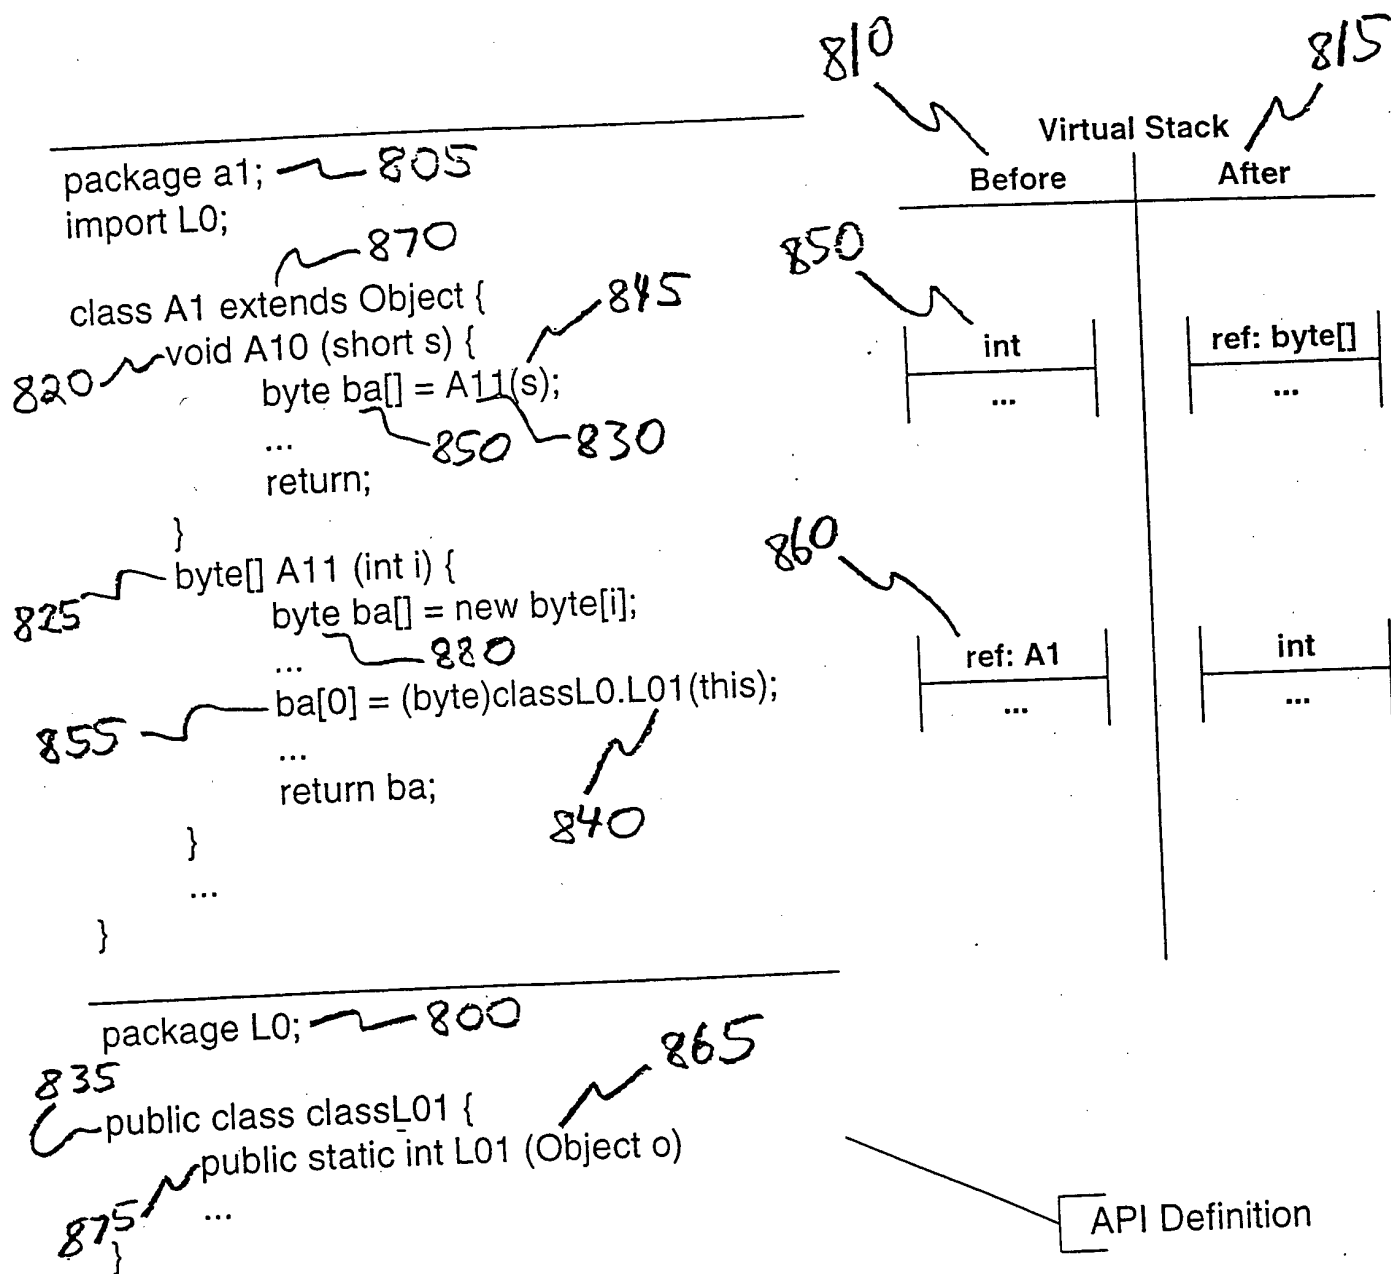 810
815
Virtual Stack
Before
After
package a1; 805
import L0;
870
class A1 extends Object {
845
820 void A10 (short s) {
byte ba[] = A11(s);
...
850 830
return;
}
825 byte[] A11 (int i) {
byte ba[] = new byte[i];
... 880
855 ba[0] = (byte)classL0.L01(this);
...
return ba;
840
}
...
}
850
int
...
ref: byte[]
...
860
ref: A1
...
int
...
package L0; 800
835
865
public class classL01 {
public static int L01 (Object o)
875 ...
}
API Definition